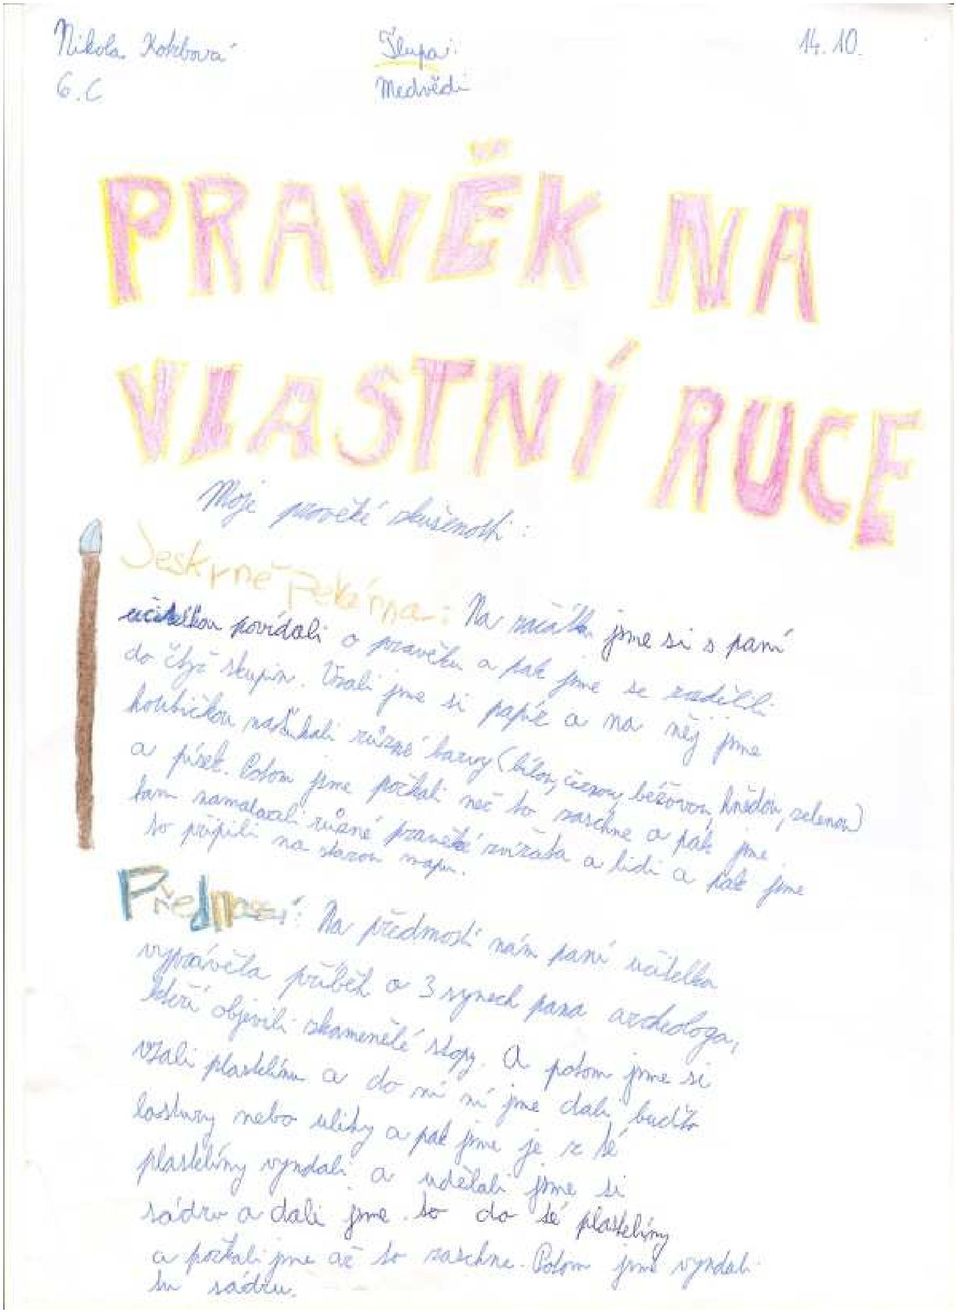 Nikola Kohbová
Tlupa:
14.10.
6.C
Medvědi
PRAVĚK NA
VLASTNÍ RUCE
Moje pravěké skušenosti:
Jeskyně Pekárna: Na začátku jsme si s paní
učitelkou povídali o pravěku a pak jsme se rozdělili
do čtyř skupin. Vzali jsme si papír a na něj jsme
houbičkou naťukali různé barvy (bílou, černou, béžovou, hnědou, zelenou)
a písek. Potom jsme počkali než to zaschne a pak jsme
tam namalovali různé pravěké zvířata a lidi a pak jsme
to připili na starou mapu.
Předmostí: Na předmostí nám paní učitelka
vyprávěla příběh o 3 synech pana archeologa,
kteří objevili zkamenělé stopy. A potom jsme si
vzali plastelínu a do ní jsme dali buďto
lastury nebo ulity a pak jsme je z té
plastelíny vyndali a udělali jsme si
sádru a dali jsme to do té plastelíny
a počkali jsme až to zaschne. Potom jsme vyndali
tu sádru.